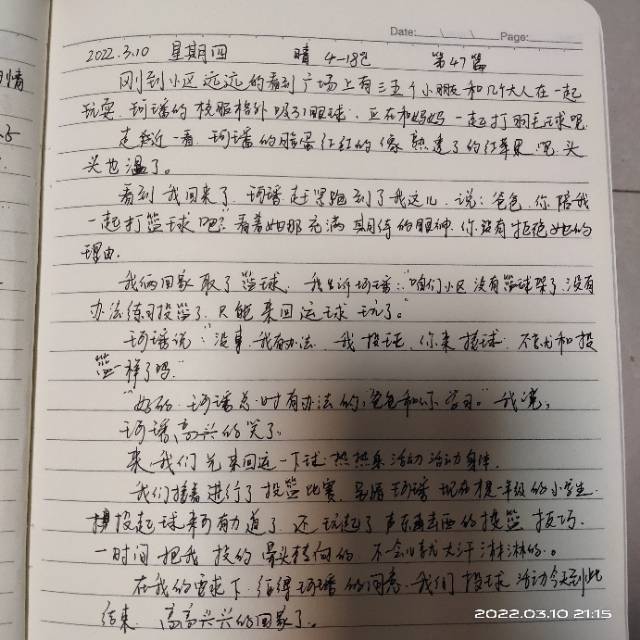 Date: Page:
2022.3.10 星期四 晴 4-18℃ 第47篇
刚到小区远远的看到广场上有三五个小朋友和几个大人在一起
玩耍.珂璠的校服格外吸引眼球.正在和妈妈一起打羽毛球呢.
走近一看.珂璠的脸蛋红红的像熟透了的红苹果呢.头
头也湿了。
看到我回来了.珂璠赶紧跑到了我这儿.说:爸爸.你陪我
一起打篮球吧?"看着她那充满期待的眼神.你没有拒绝她的
理由.
我俩回家取了篮球.我告诉珂璠:"咱们小区没有篮球架了.没有
办法练习投篮了.只能来回运球玩了。"
珂璠说:"没事.我有办法.我投球.你来接球.不就和投
篮一样了吗."
"好的.珂璠总时有办法的,爸爸和你学习。"我说,
珂璠高兴的笑了.
来.我们先来回运一下球.热热身活动活动身体.
我们接着进行了投篮比赛.别看珂璠现在才是一年级的小学生.
投起球来可有力道了.还玩起了声东击西的投篮技巧.
一时间把我投的晕头转向的.不会儿就大汗淋淋的.。
在我的要求下.征得珂璠的同意.我们投球活动今天到此
结束.高高兴兴的回家了。
情
2022.03.10 21:15